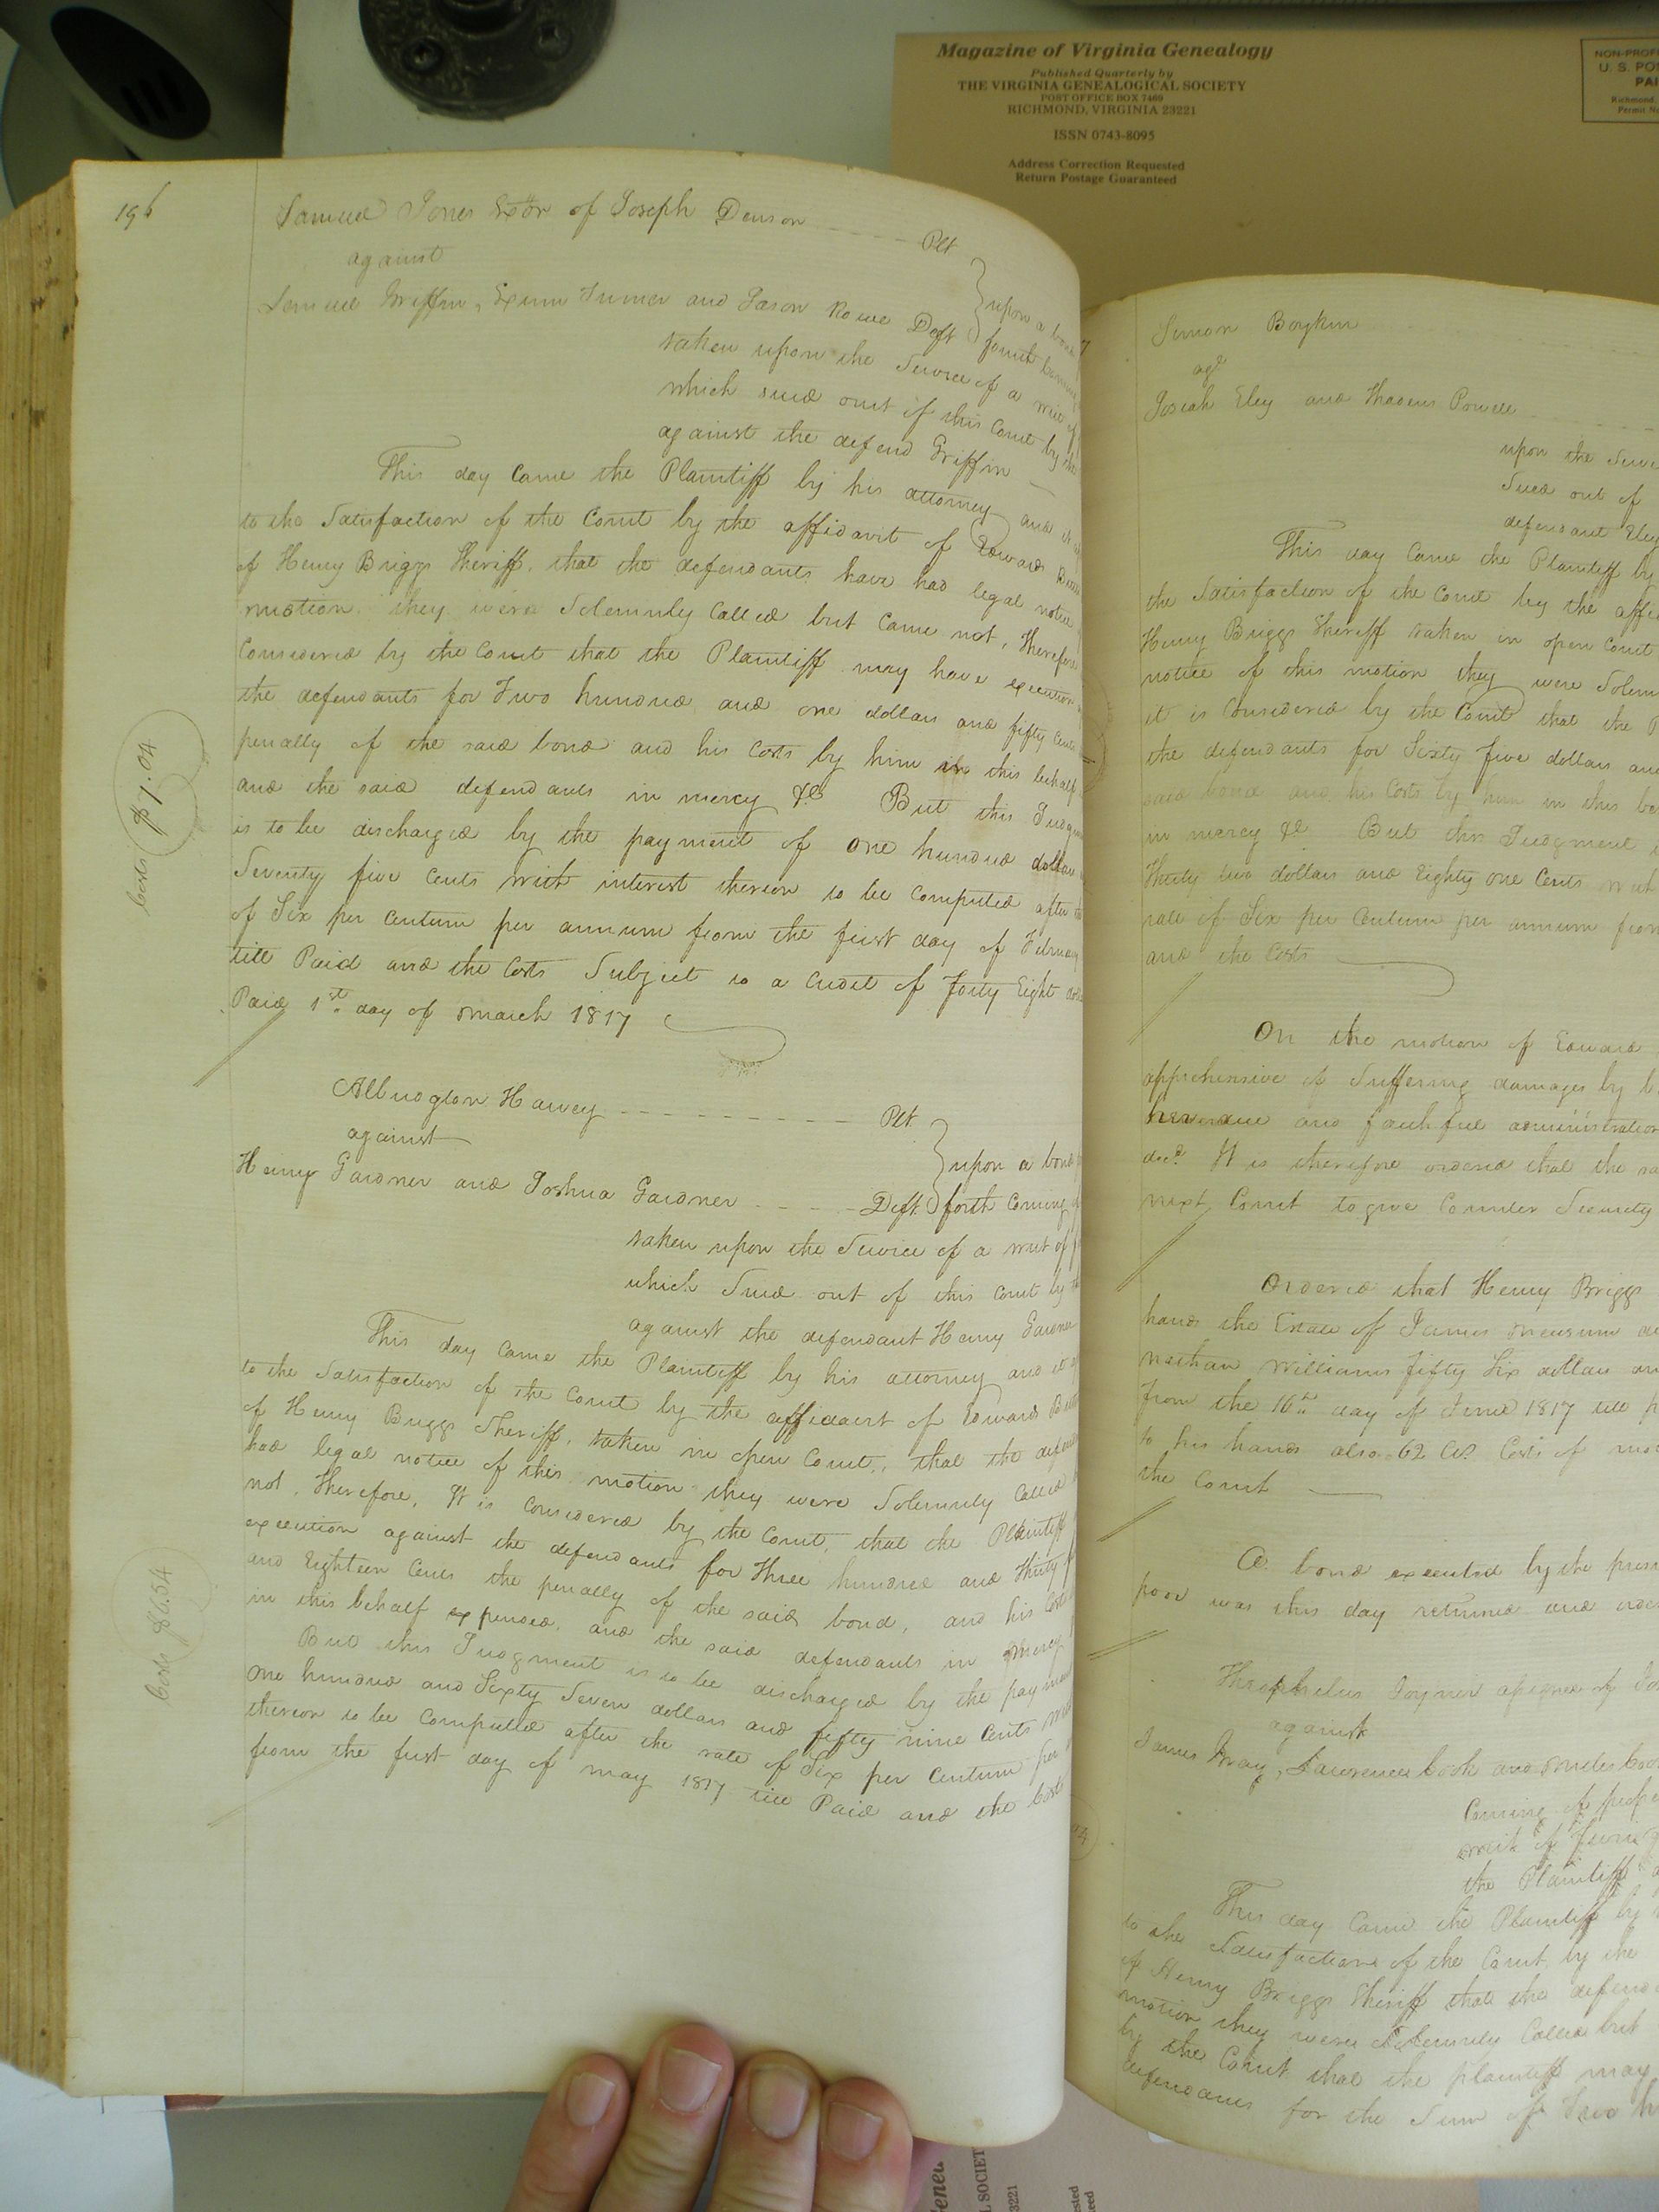 Magazine of Virginia Genealogy
Published Quarterly by
THE VIRGINIA GENEALOGICAL SOCIETY
POST OFFICE BOX 7469
RICHMOND, VIRGINIA 23221
ISSN 0743-8095
Address Correction Requested
Return Postage Guaranteed
NON-PROF
U. S. POS
PAI
Richmond,
Permit N
196
Samuel Jones Exor of Joseph Denson Plt
against
Lemuel Griffin, Exum Turner and Jason Rowe Deft upon a bond
forth coming
taken upon the Service of a writ of
which sued out of this Court by the
against the defend Griffin
This day came the Plaintiff by his attorney and it
to the Satisfaction of the Court by the affidavit of Edward
of Henry Briggs Sheriff, that the defendants have had legal notice
motion, they were Solemnly Called but Came not, Therefore
Considered by the Court that the Plaintiff may have execution
the defendants for Two hundred and one dollars and fifty Cents
penalty of the said bond and his Costs by him in this behalf
and the said defendants in mercy &c But this Judgm
is to be discharged by the payment of One hundred dollars
Seventy five Cents with interest thereon to be Computed after the
of Six per Centum per annum from the first day of February
till Paid and the Costs Subject to a Credit of Forty Eight
Paid 1st day of March 1817
Costs $7.04
Albridgton Harvey Plt
against
Henry Gardner and Joshua Gardner Deft upon a bond
forth Coming
taken upon the Service of a writ of
which Sued out of this Court by
against the defendant Henry Gardner
This day Came the Plaintiff by his attorney and it
to the Satisfaction of the Court by the affidavit of Edward
of Henry Briggs Sheriff, taken in open Court, that the defen
had legal notice of this motion they were Solemnly Called
not, Therefore, It is Considered by the Court, that the Plaintiff
execution against the defendants for Three hundred and Thirty
and Eighteen Cents the penalty of the said bond, and his Costs
in this behalf expended, and the said defendants in mercy
But this Judgment is to be discharged by the payment
One hundred and Sixty Seven dollars and fifty nine Cents
thereon to be Computed after the rate of Six per Centum per
from the first day of May 1817 till Paid and the Costs
Costs $6.54
Simon Boykin
agt
Josiah Eley and Thadeus Powell
upon the Serv
Sued out of
defendant Eley
This day Came the Plaintiff by
the Satisfaction of the Court by the affi
Henry Briggs Sheriff taken in open Court
notice of this motion they were Solem
it is Considered by the Court that the P
the defendants for Sixty five dollars and
said bond and his Costs by him in this be
in mercy &c But this Judgment
Thirty two dollars and Eighty one Cents with
rate of Six per Centum per annum from
and the Costs
On the motion of Edward
apprehensive of Suffering damages by
and faithful administration
decd It is therefore ordered that the sa
next Court to give Counter Security
Ordered that Henry Briggs
hands the Estate of James
Nathan Williams Fifty Six dollars an
from the 16th day of June 1817 till p
to his hands also 62 Cts Costs of mo
the Court
A bond executed by the
poor was this day returned and orde
Theophelus Joyner assignee of
against
James Gray, Lawrence Cook and Miles
Coming of prope
writ of
the Plaintiff
This day Came the Plaintiff by
to the Satisfaction of the Court by the
of Henry Briggs Sheriff that the defend
motion they were Solemnly Called but
by the Court that the plaintiff may
defendants for the Sum of Two h